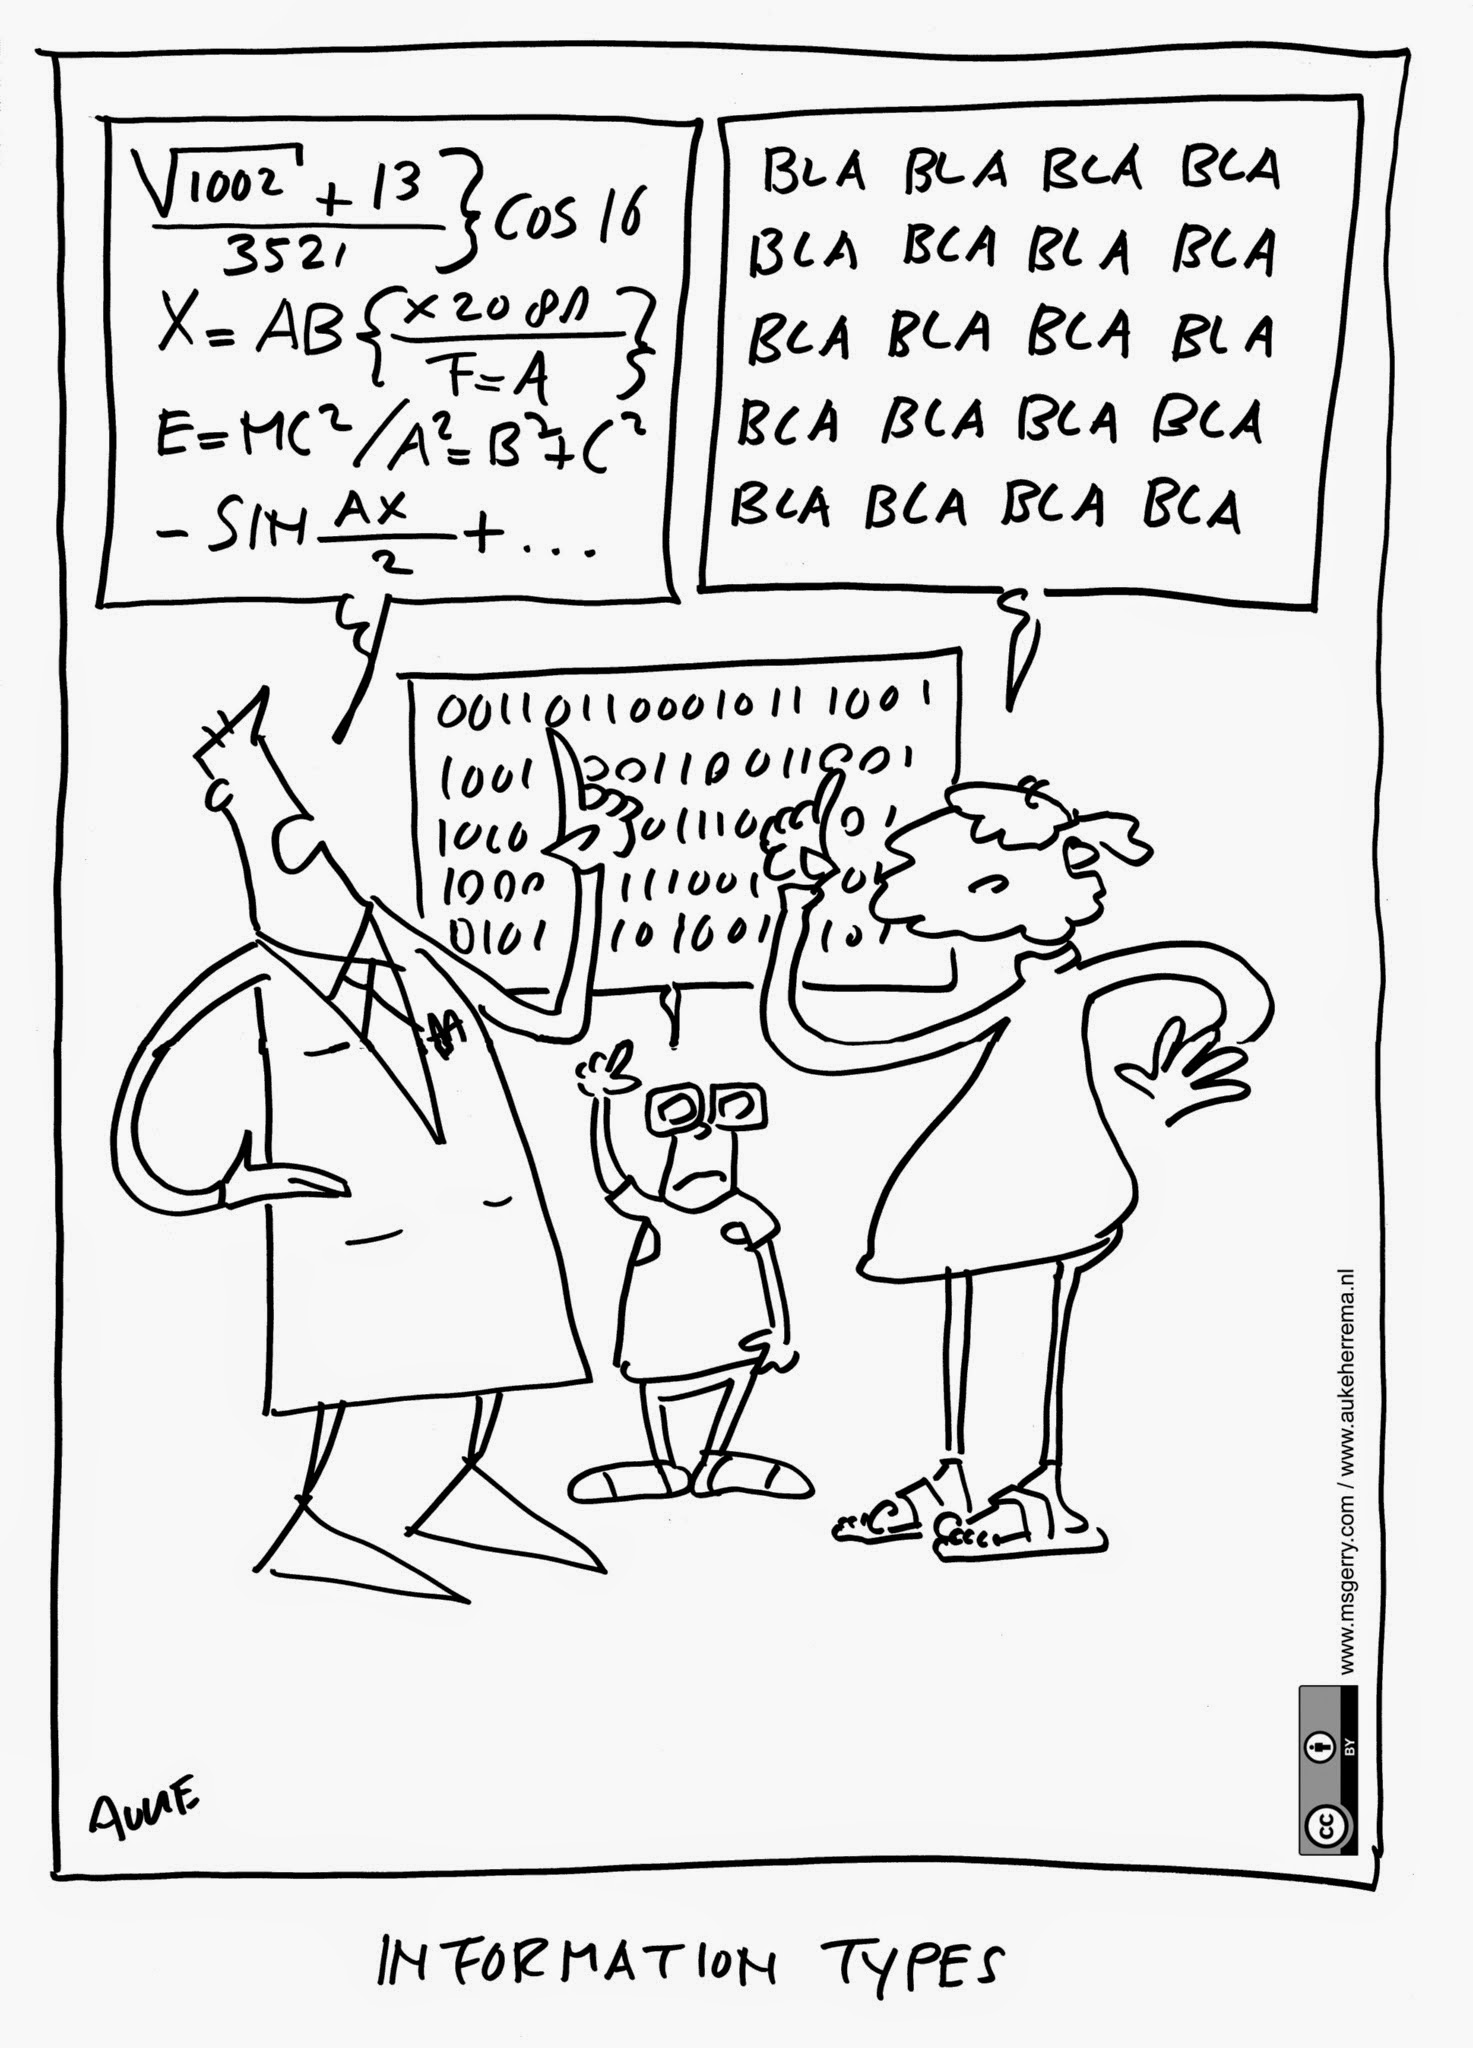 √1002 + 13 } COS 16
3521
X = AB { X 20 8Π }
F = A
E = MC² / A² = B² + C²
- SIN AX + ...
2
BLA BLA BLA BLA
BLA BLA BLA BLA
BLA BLA BLA BLA
BLA BLA BLA BLA
BLA BLA BLA BLA
0011011000101111001
1001 00110011001
1010 3011110 01
1000 111001 01
0101 101001 101
www.msgerry.com / www.aukeherrema.nl
CC BY
AUKE
INFORMATION TYPES